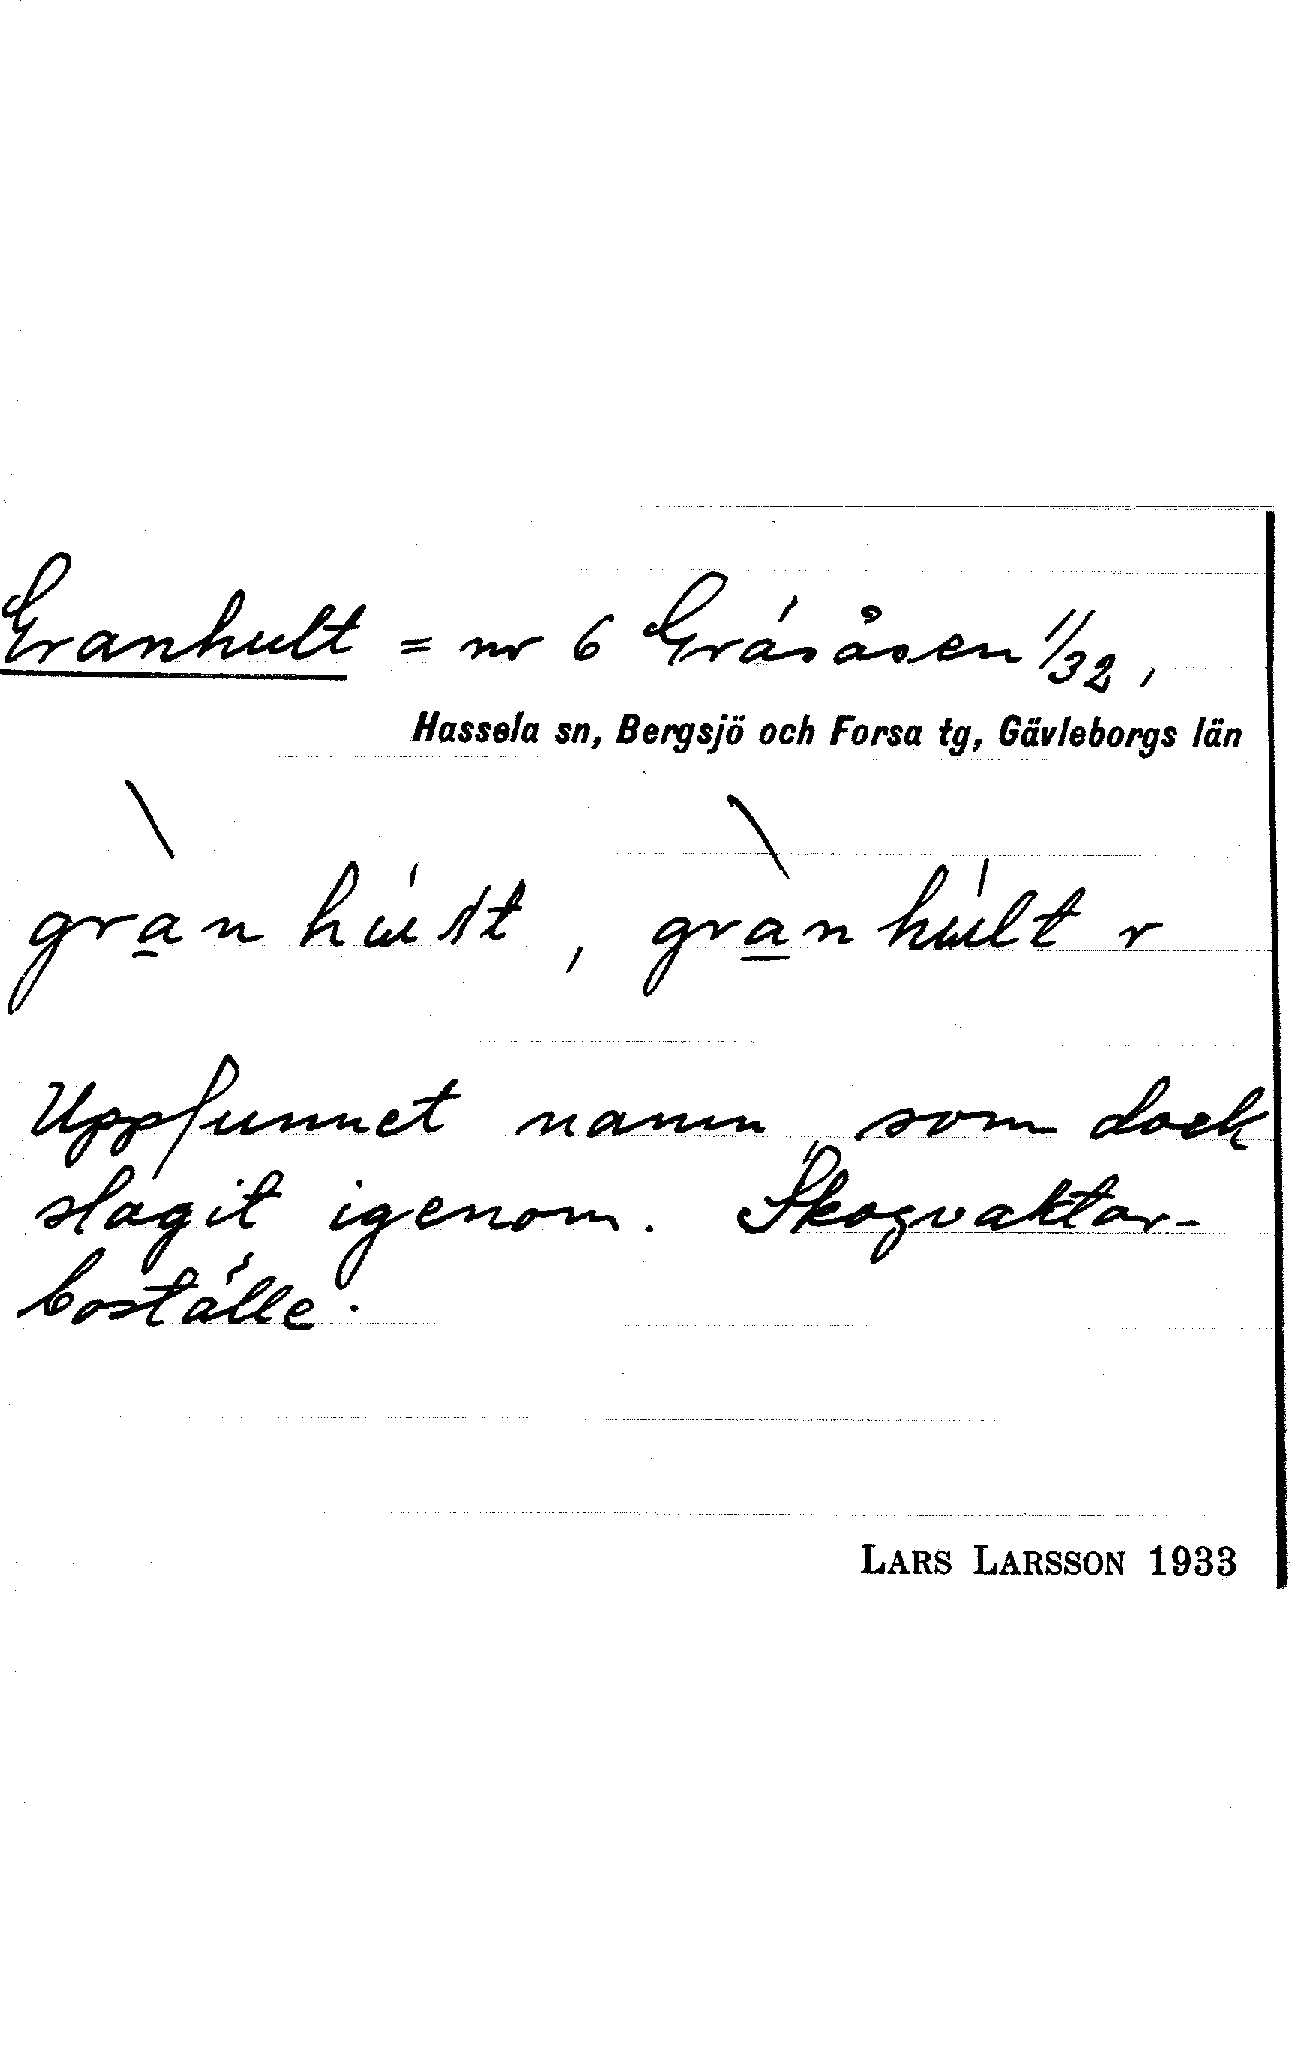 Granhult = nr 6 Gråsåsen 1/32,
Hassela sn, Bergsjö och Forsa tg, Gävleborgs län
uppfunnet namn, som dock
slagit igenom. Skogvaktar-
boställe.
LARS LARSSON 1933